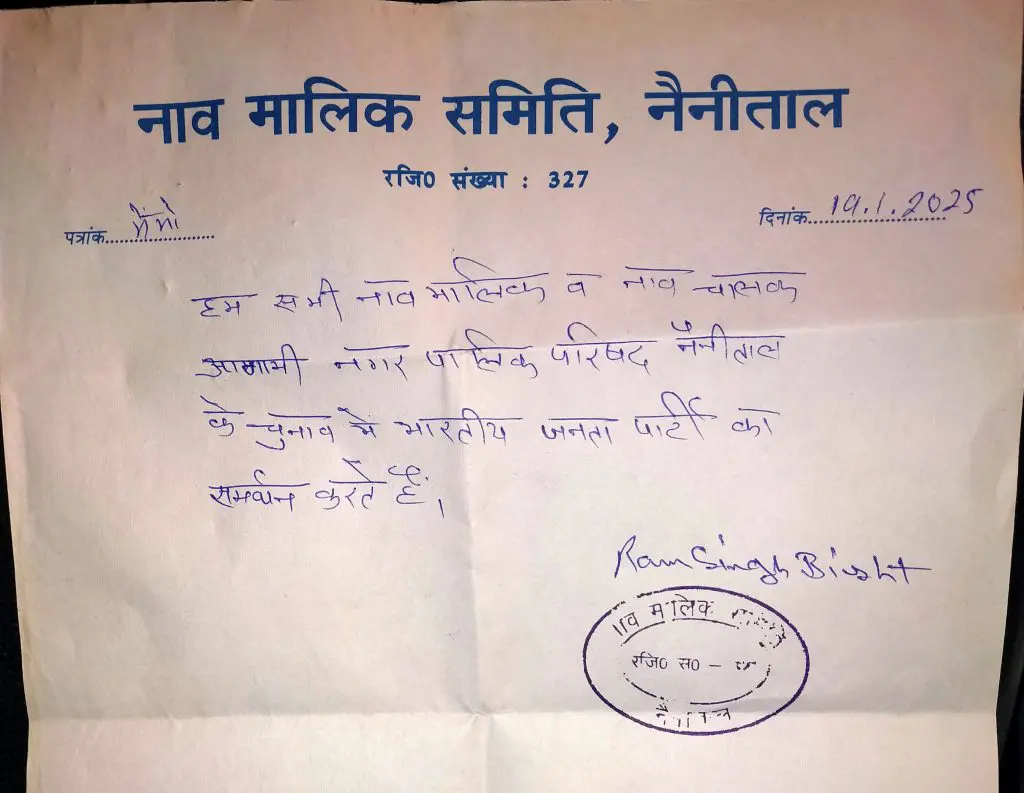 नाव मालिक समिति, नैनीताल
रजि0 संख्या : 327
पत्रांक.......................
दिनांक..........19.1.2025
हम सभी नाव मालिक व नाव चालक
आगामी नगर पालिक परिषद नैनीताल
के चुनाव मे भारतीय जनता पार्टी का
समर्थन करते हैं।
Ram Singh Bisht
नाव मालिक
रजि0 स0 -
नैनीताल